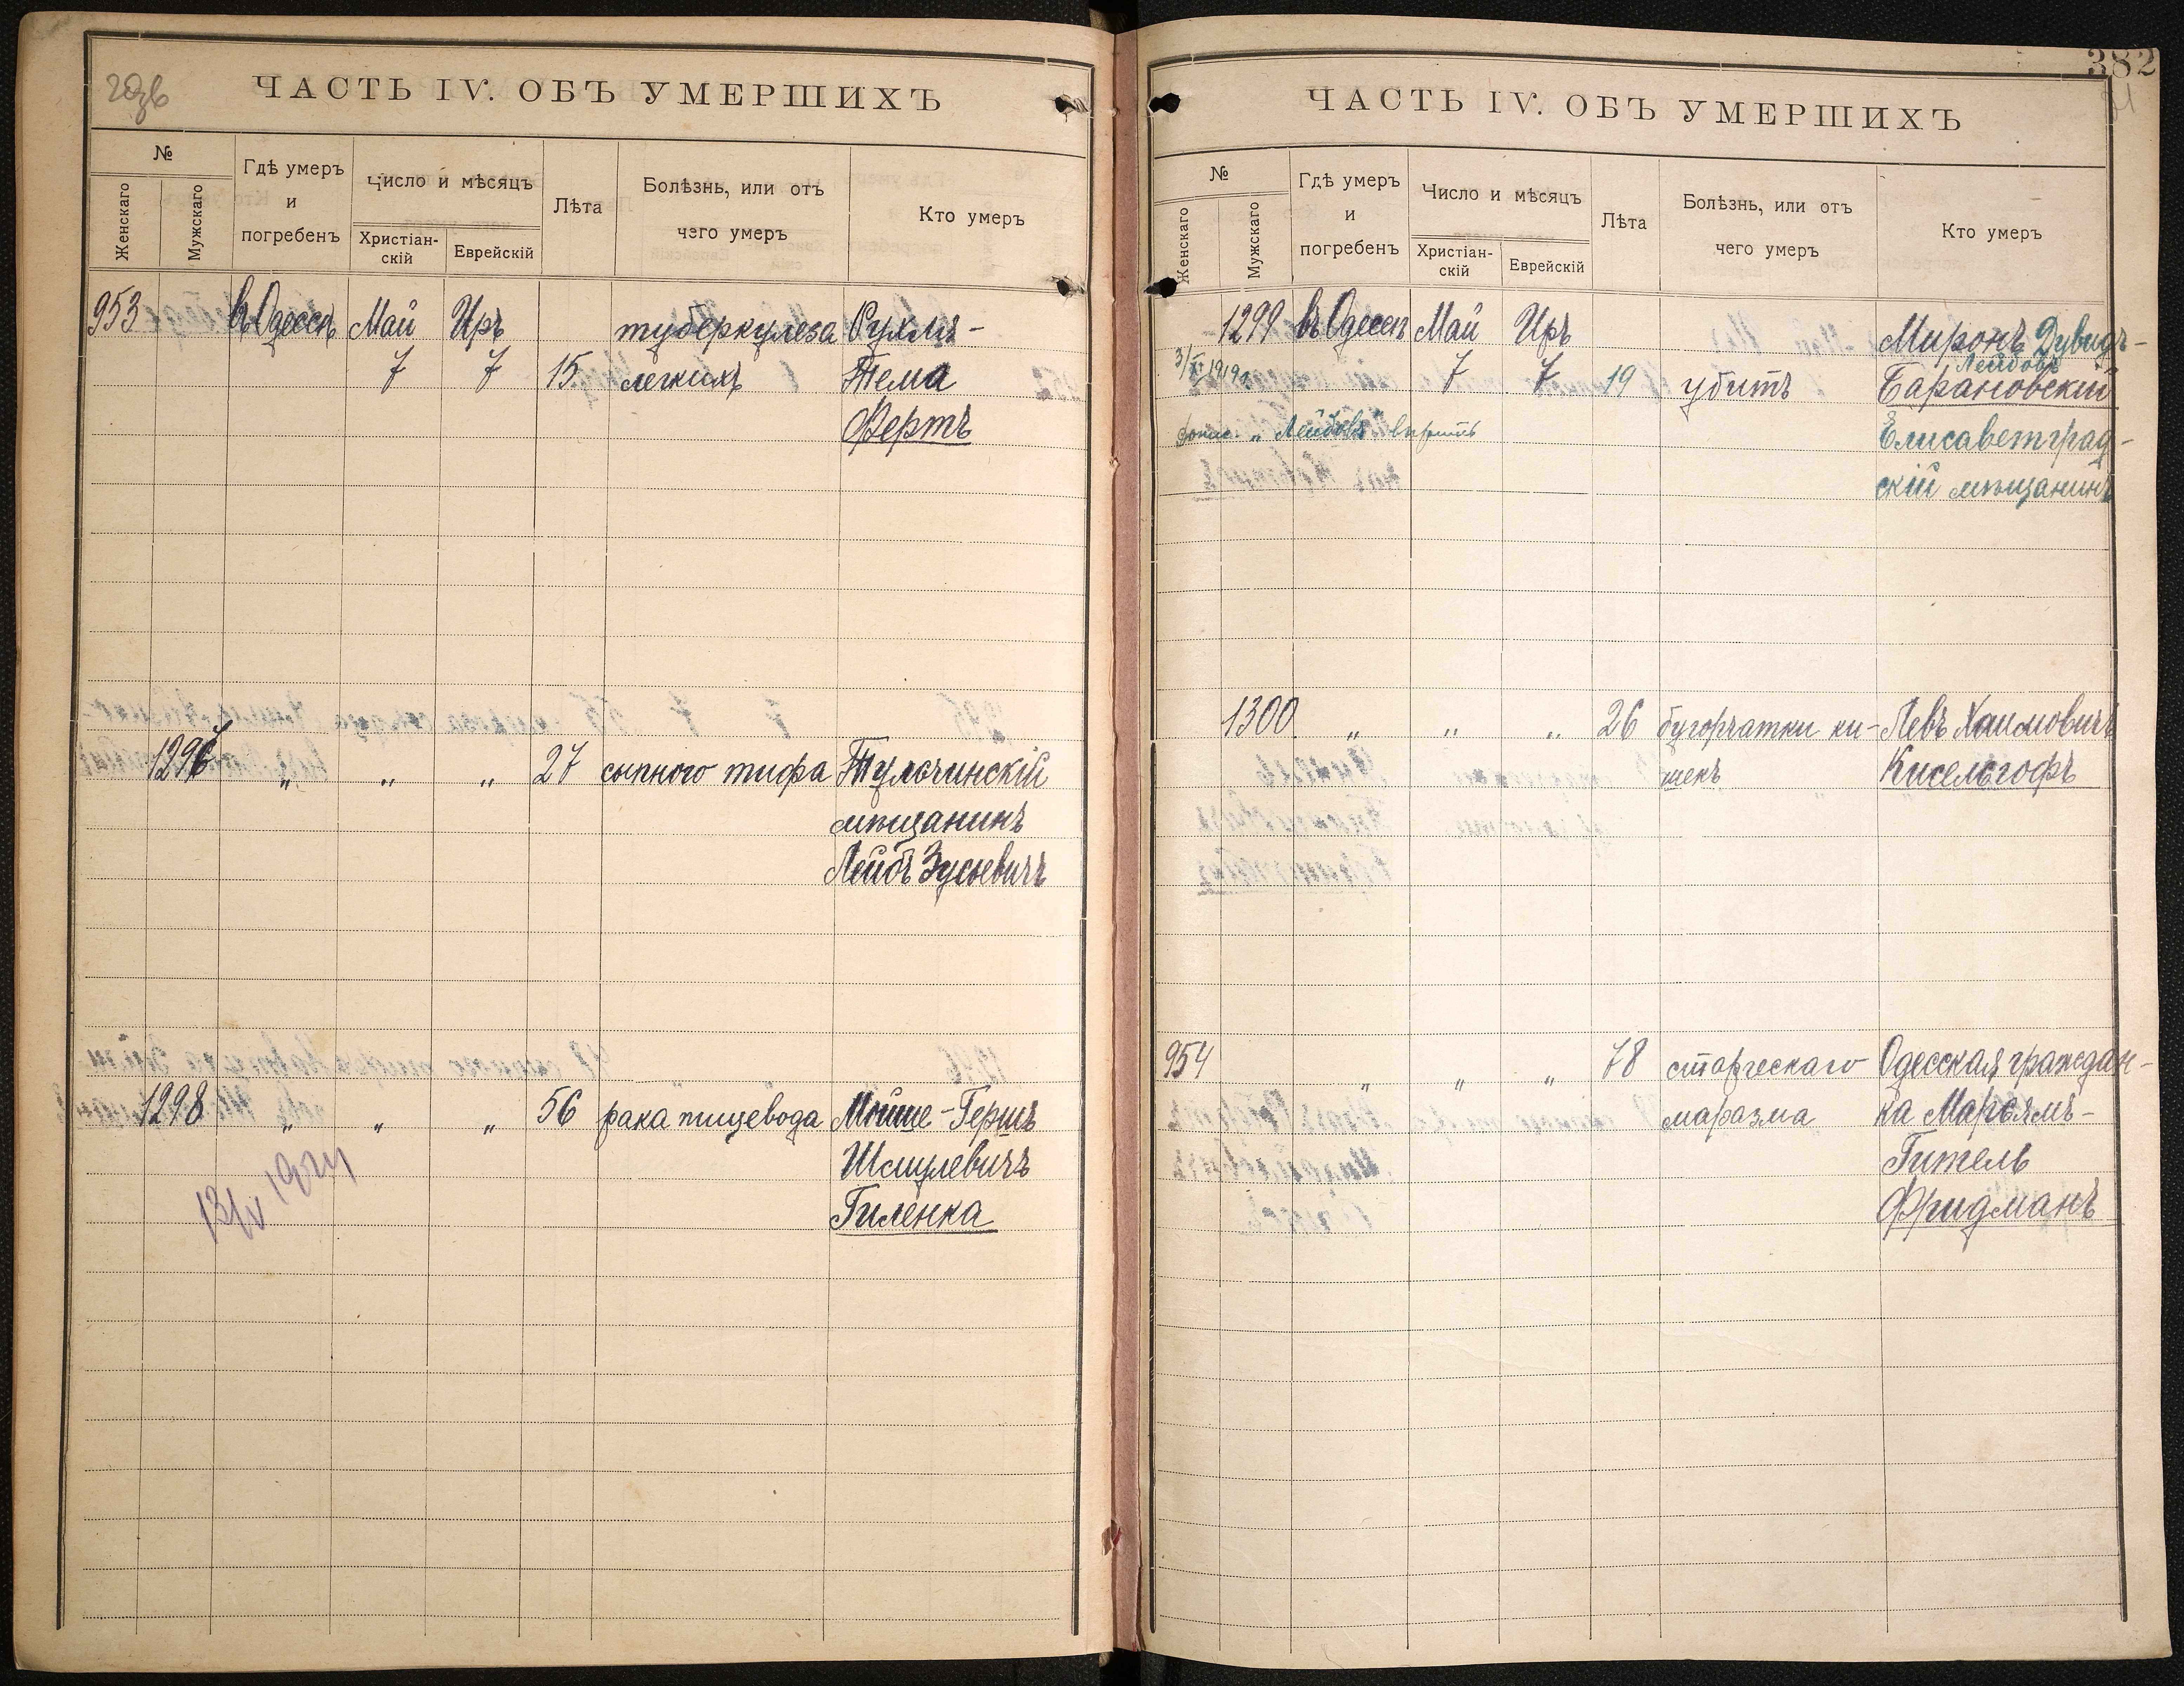 ЧАСТЬ IV. ОБЪ УМЕРШИХЪ
№
Женскаго
Мужскаго
Гдѣ умеръ
и
погребенъ
Число и мѣсяцъ
Христіан-
скій
Еврейскій
Лѣта
Болѣзнь, или отъ
чего умеръ
Кто умеръ
953 въ Одессѣ Май Иръ туберкулеза Рухля-
7 7 15 легкихъ Тема
Фертъ
1297 " " " 27 сыпного тифа Тульчинскій
мѣщанинъ
Лейбъ Зусьевичъ
1298 " " " 56 рака пищевода Мойше-Гершъ
Шмулевичъ
Гиленка
13/IV 1924
382
ЧАСТЬ IV. ОБЪ УМЕРШИХЪ
№
Женскаго
Мужскаго
Гдѣ умеръ
и
погребенъ
Число и мѣсяцъ
Христіан-
скій
Еврейскій
Лѣта
Болѣзнь, или отъ
чего умеръ
Кто умеръ
1299 въ Одессѣ Май Иръ Миронъ Дувидъ-
Лейбовъ
3/XI 1919 7 7 19 убитъ Барановскій
"Лейбовъ" вѣрить Елисаветград-
скій мѣщанинъ
1300 " " " 26 бугорчатки ки- Левъ Хаимовичъ
шекъ Кисельгофъ
954 " " " 78 старческаго Одесская граждан-
маразма ка Марьямъ-
Гитель
Фридманъ